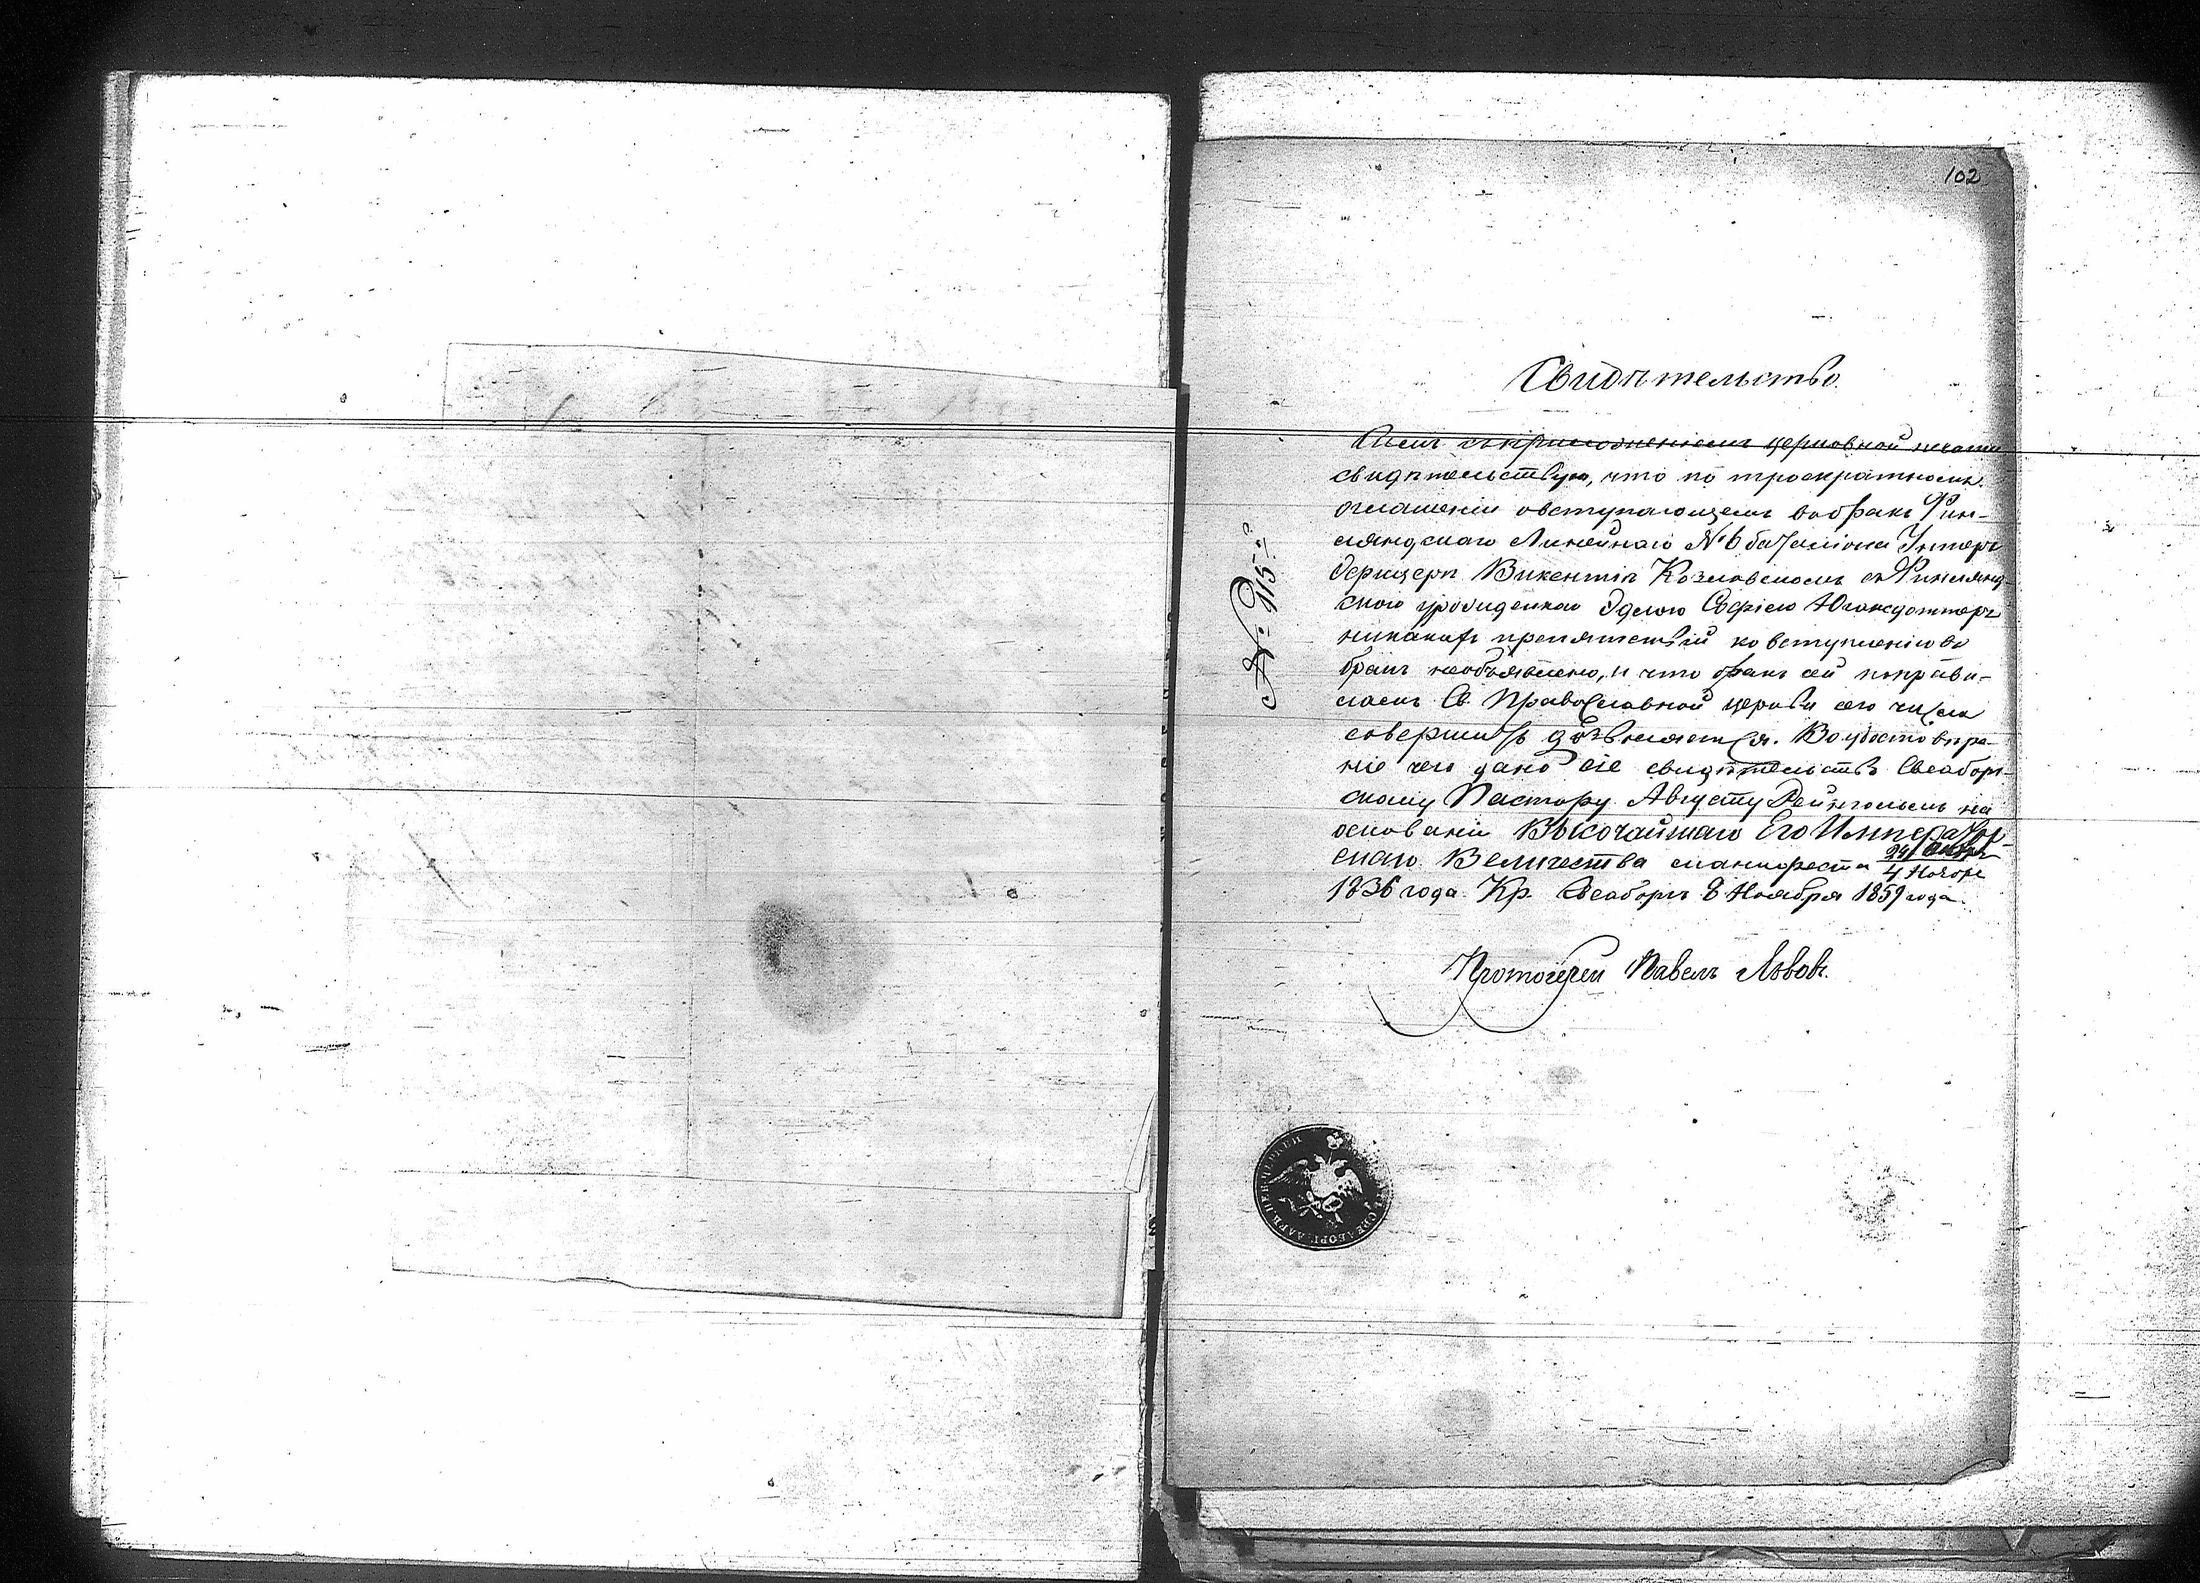 102
Свидѣтельство.
Симъ съ приложеніемъ церковной печати
свидѣтельствую, что по троекратномъ
оглашеніи о вступающемъ въ бракъ Фин-
ляндскаго Линейнаго № 6 баталіона Унтеръ
Офицерѣ Викентіѣ Козловскомъ съ Финлянд-
скою уроженкою Эдлою Софіею Юхансдоттеръ
никакихъ препятствій ко вступленію въ
бракъ необъявлено, и что бракъ сей по прави-
ламъ Св. Православной церкви сего числа
совершить дозволяется. Въ удостовѣре-
ніе чего дано сіе свидѣтельство Свеаборг-
скому Пастору Августу на
основаніи Высочайшаго Его Император-
скаго Величества манифеста 24 Октяб.
4 Ноября
1836 года. Кр. Свеаборгъ 8 Ноября 1859 года.
Протоіерей Павелъ Львовъ.
№ 115